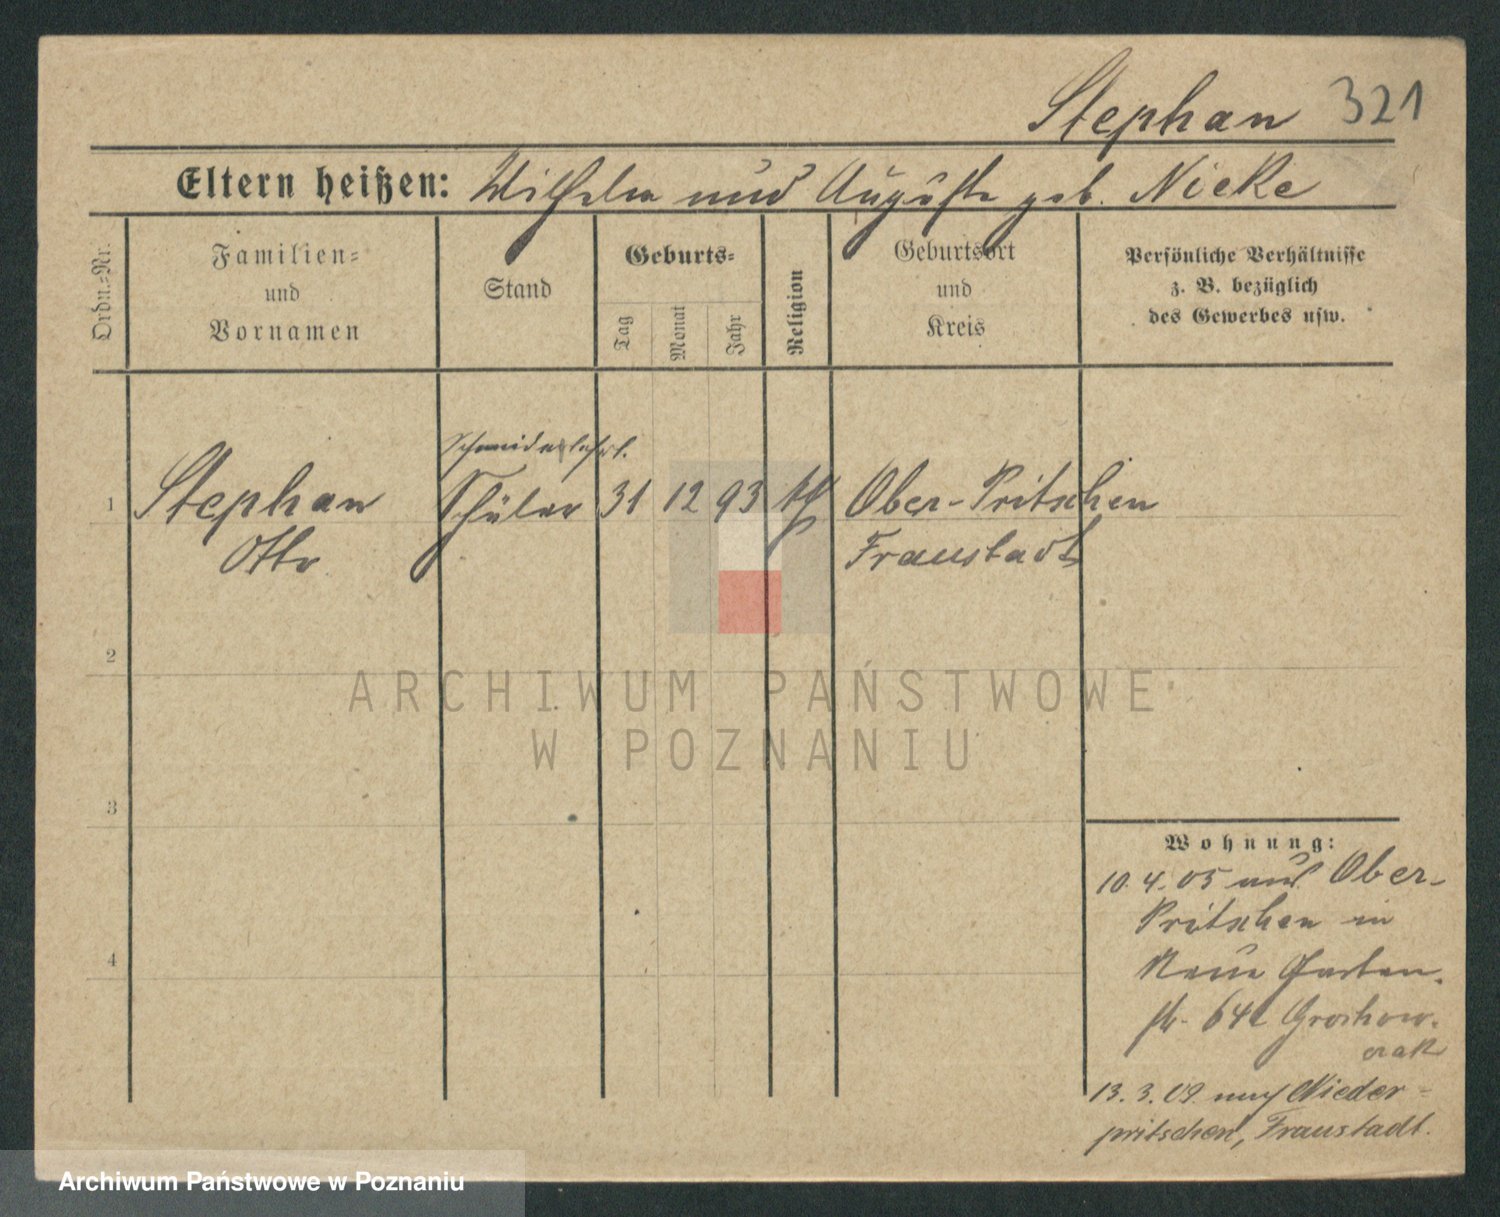 Stephan 321
Eltern heißen: Wilhelm und Auguste geb. Nicke
Ordn.-Nr.
Familien-
und
Vornamen
Stand
Geburts-
Tag
Monat
Jahr
Religion
Geburtsort
und
Kreis
Persönliche Verhältnisse
z. B. bezüglich
des Gewerbes usw.
Schneiderlehrl.
1 Stephan Schüler 31 12 93 Ober-Pritschen
Otto Fraustadt
2
3
4
Wohnung:
10.4.05 aus Ober-
Pritschen in
Neue Garten-
str. 64 Grochow-
13.3.09 nach Nieder-
pritschen, Fraustadt.
ARCHIWUM PAŃSTWOWE
W POZNANIU
Archiwum Państwowe w Poznaniu